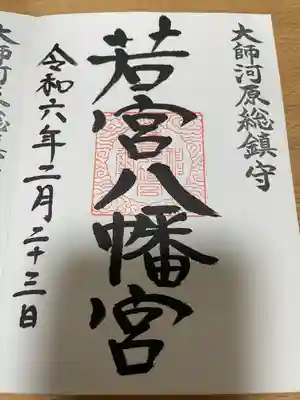 大師河原総鎮守
若宮八幡宮
令和六年二月二十三日